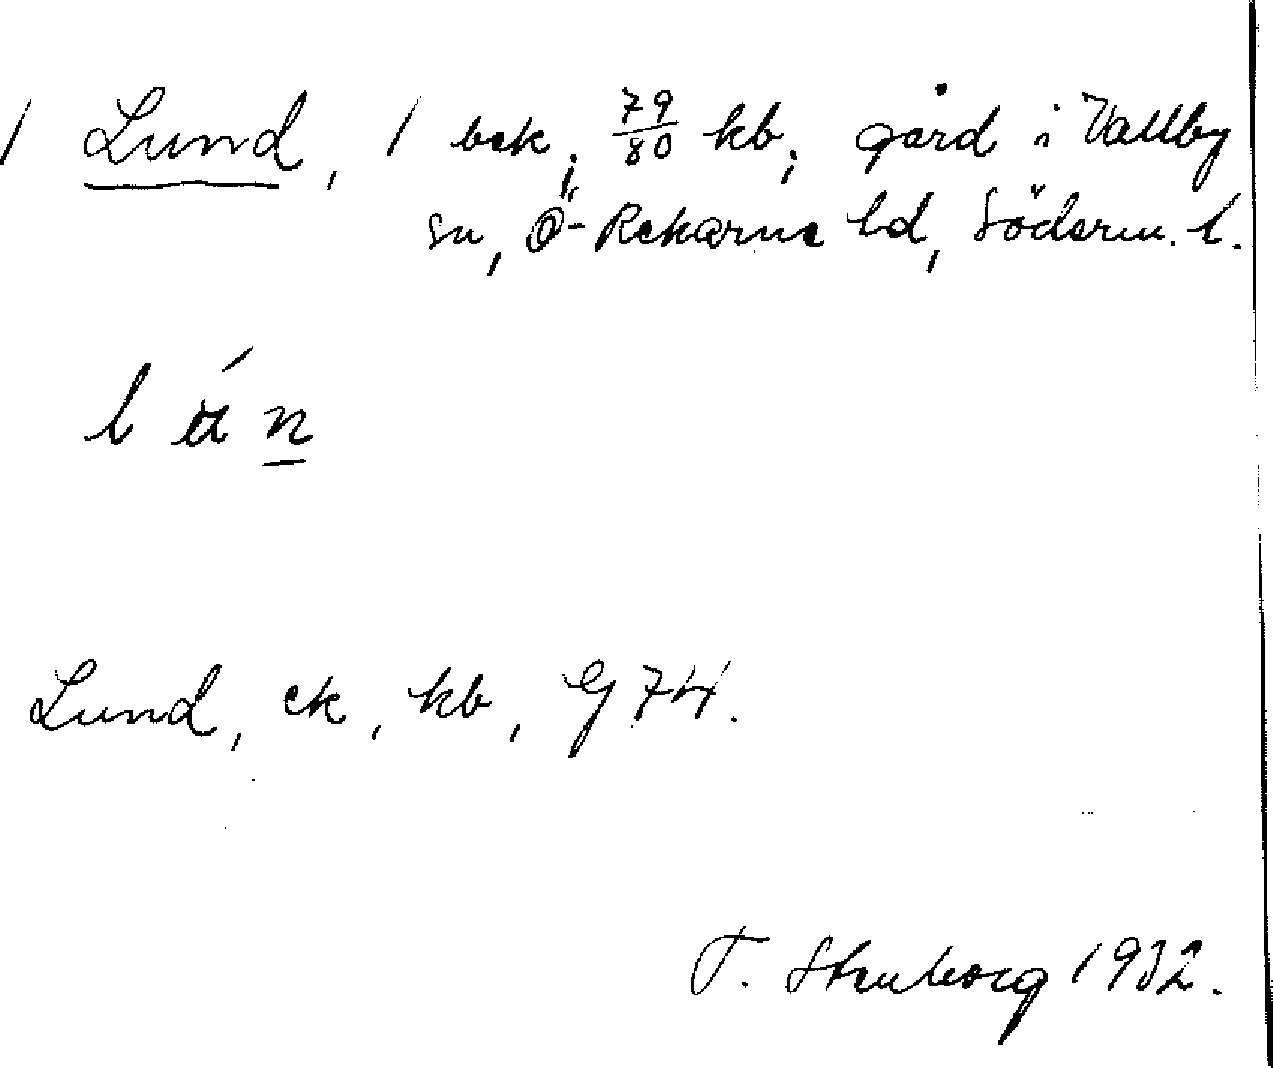 1 Lund, 1 bek; 79/80 kb; gård i Vallby
sn, Ö-Rekarne hd, Söderm. l.
Lund, ck, kb, G 74.
T. Stenborg 1932.